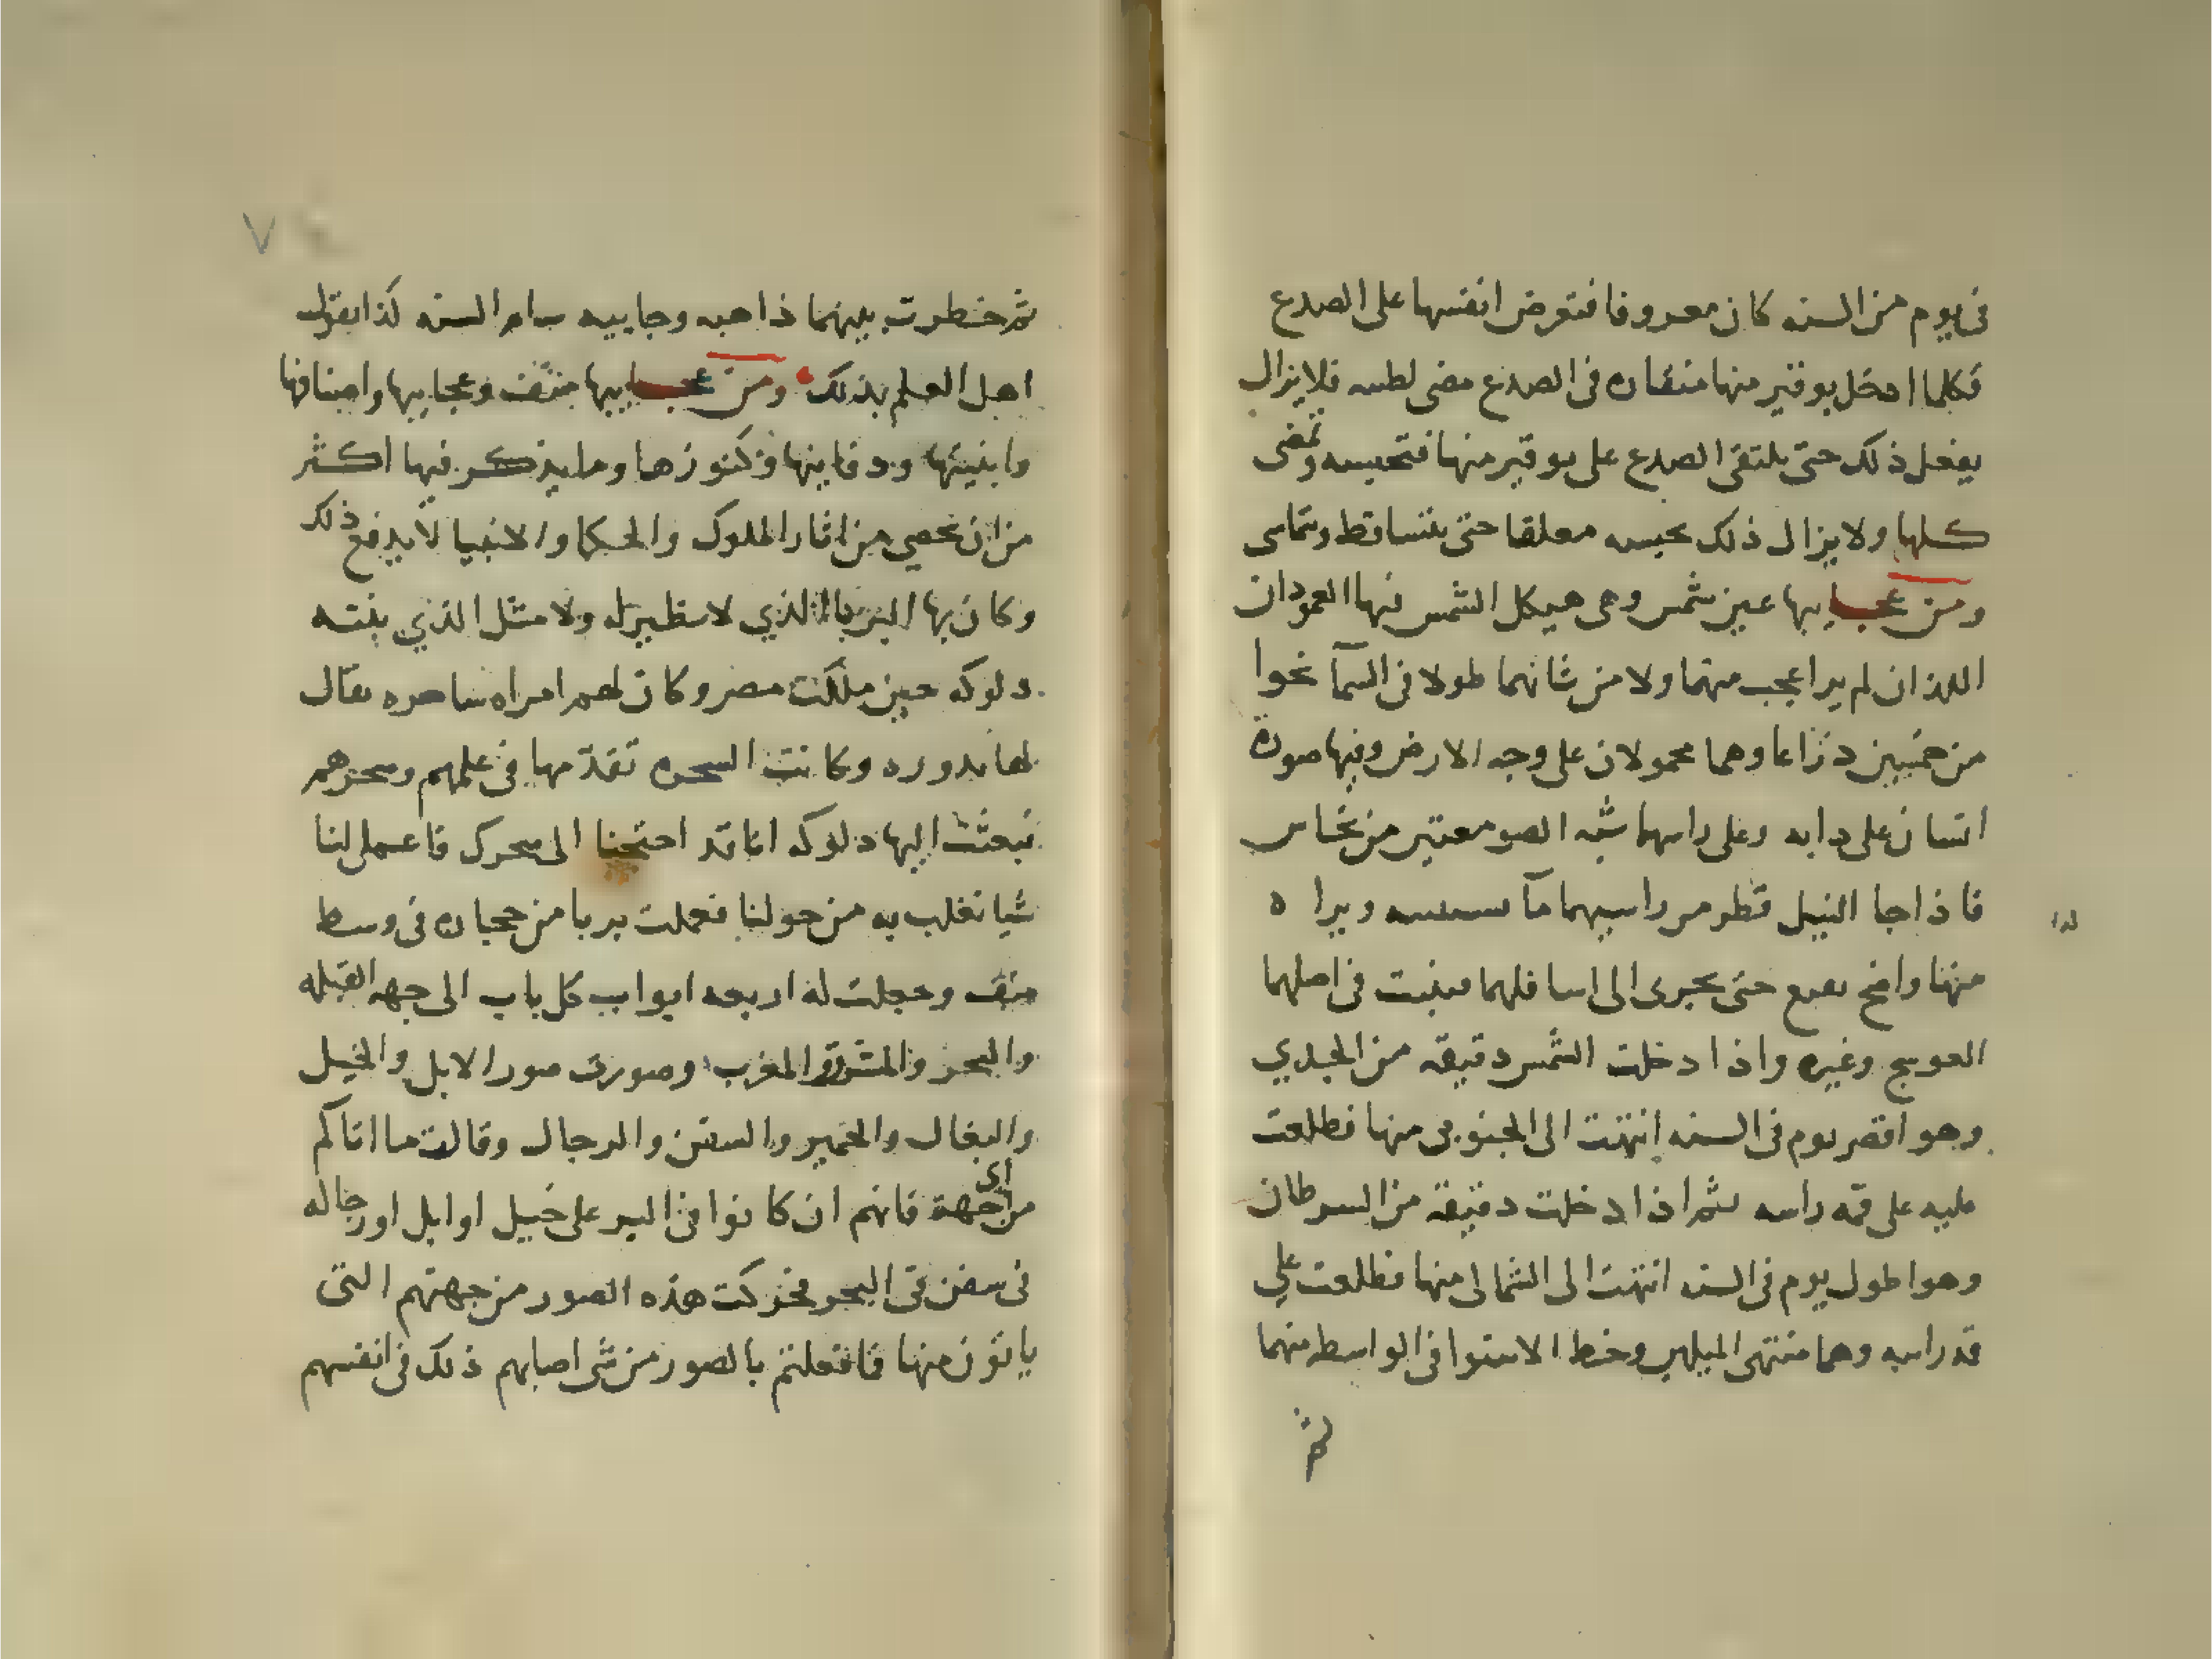 في يوم من السنه كان معروفا فتعرض انفسها على الصدع
فكلما ادخل بوقير منها منقاره في الصدع مضى لطيته فلا يزال
يفعل ذلك حتى يلتقى الصدع على بوقير منها فتحبسه وتمضى
كلها ولا يزال ذلك بحبسه معلقا حتى يتساقط
ومن عجايبها عين شمس وهى هيكل الشمس فيها العمودان
اللذان لم ير اعجب منهما ولا من شانهما طولا في السمآ نحوا
من خمسين ذراعا وهما محمولان على وجه الارض وفيها صورة
انسان على دابه وعلى راسهما شبه الصومعتين من نحاس
فاذا جا النيل قطر من راسيهما مآ ويرا ه
منها واضح حتى يجرى الى اسافلهما فينبت في اصلهما
العوسج وغيره واذا دخلت الشمس دقيقه من الجدي
وهو اقصر يوم في السنه انتهت الى الجنوبى منها فطلعت
عليه على قمه راسه ثم اذا دخلت دقيقة من السرطان
وهو اطول يوم في السنه انتهت الى الشمالى منها فطلعت على
قمه راسه وهما منتهى الميلين وخط الاستوا في الواسطه منهما
ثم
٧
ثم خطرت بينهما ذاهبه وجاييه ساير السنه كذا يقول
اهل العلم بذلك ومن عجايبها منف وعجايبها واصنافها
وابنيتها ودفاينها وكنوزها وما يذكر فيها اكثر
من ان يحصي من اثار الملوك والحكما والانبيا لا يدفع ذلك
وكان بها البربا الذي لا نظير له ولا مثل الذي بنته
دلوكه حين ملكت مصر وكان لهم امراه ساحره يقال
لها تدوره وكانت السحره تقدمها في علمهم وسحرهم
فبعثت اليها دلوكه انا قد احتجنا الى سحرك فاعملى لنا
شيا نغلب به من حولنا فعملت بربا من حجاره في وسط
منف وجعلت له اربعه ابواب كل باب الى جهه القبله
والبحر والمشرق والمغرب وصورت صور الابل والخيل
والبغال والحمير والسفن والرجال وقالت ما اتاكم
من اي جهة فانهم ان كانوا في البر على خيل او ابل او رجاله
في سفن في البحر تحركت هذه الصور من جهتهم التى
ياتون منها فما فعلتم بالصور من شى اصابهم ذلك في انفسهم